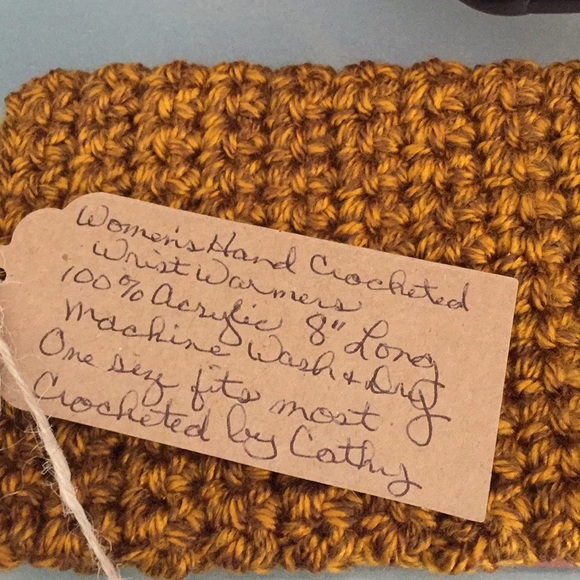 Women's Hand Crocheted
Wrist Warmers
100% Acrylic 8" Long
Machine Wash & Dry
One size fits most.
Crocheted by Cathy